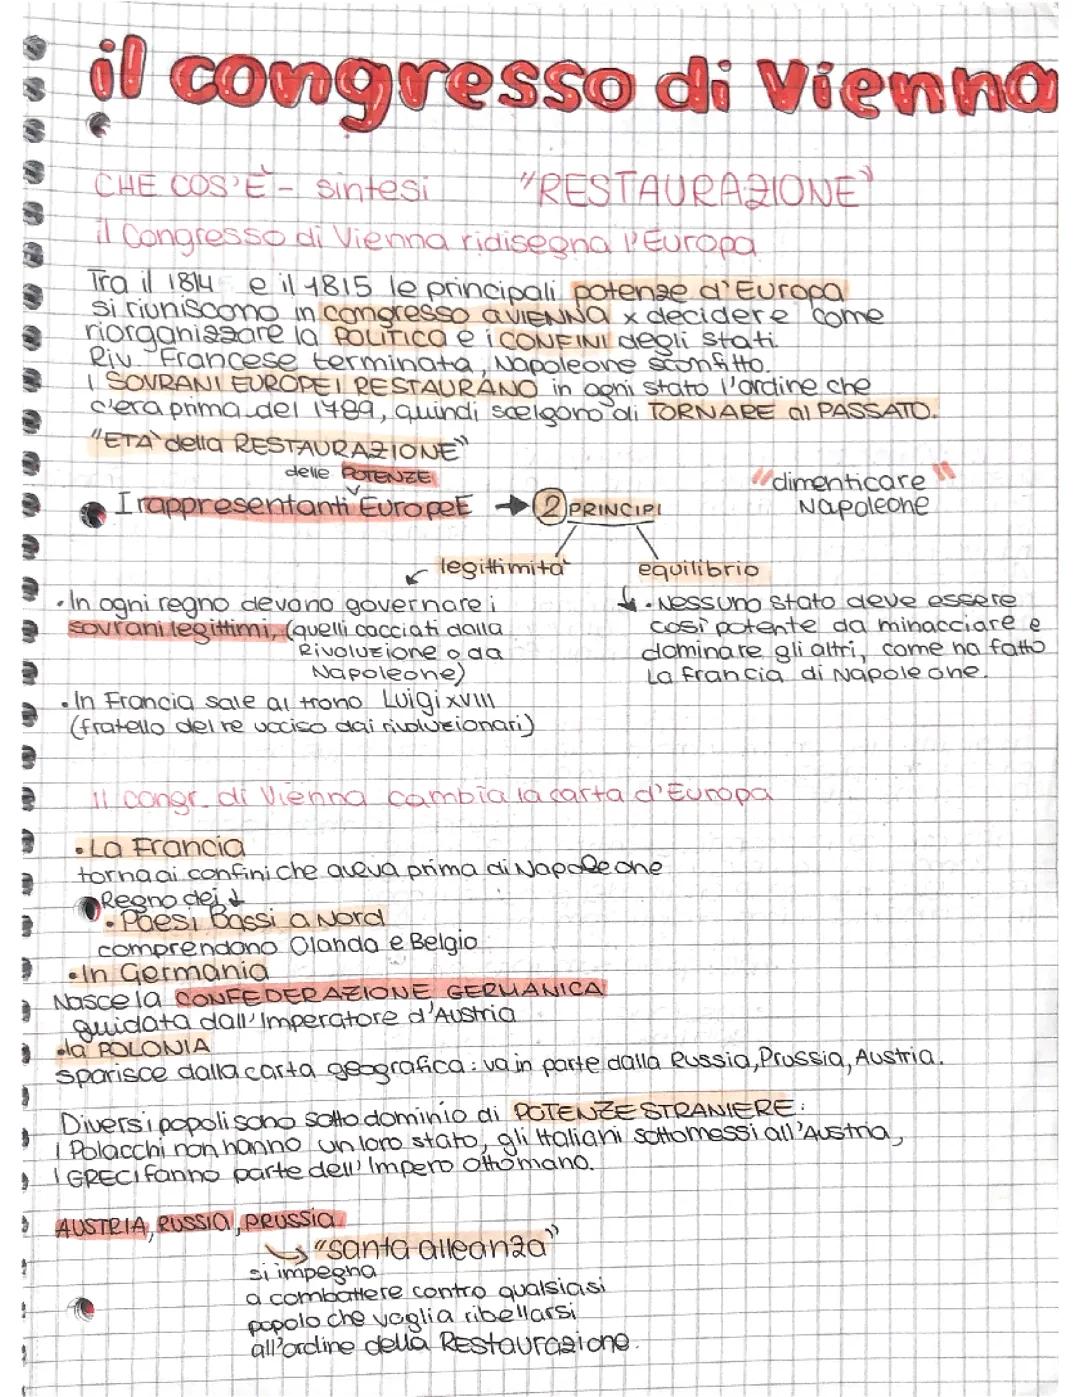 il congresso di Vienna
CHE COS'È - sintesi "RESTAURAZIONE"
il Congresso di Vienna ridisegna l'Europa
Tra il 1814 e il 1815 le principali potenze d'Europa
si riuniscono in congresso a VIENNA x decidere come
riorganizzare la POLITICA e i CONFINI degli stati.
Riv. Francese terminata, Napoleone sconfitto.
I SOVRANI EUROPEI RESTAURANO in ogni stato l'ordine che
c'era prima del 1789, quindi scelgono di TORNARE al PASSATO.
"ETÀ della RESTAURAZIONE"
delle POTENZE
I rappresentanti EuropeE → 2 PRINCIPI
"dimenticare"
Napoleone
legittimità
equilibrio
• In ogni regno devono governare i
sovrani legittimi, (quelli cacciati dalla
Rivoluzione o da
Napoleone)
• In Francia sale al trono Luigi XVIII
(fratello del re ucciso dai rivoluzionari)
• Nessuno stato deve essere
così potente da minacciare e
dominare gli altri, come ha fatto
la Francia di Napoleone.
Il congr. di Vienna cambia la carta d'Europa
• La Francia
torna ai confini che aveva prima di Napoleone
Regno dei ↓
• Paesi Bassi a Nord
comprendono Olanda e Belgio
• In Germania
Nasce la CONFEDERAZIONE GERMANICA
guidata dall'Imperatore d'Austria
• la POLONIA
sparisce dalla carta geografica: va in parte dalla Russia, Prussia, Austria.
Diversi popoli sono sotto dominio di POTENZE STRANIERE:
I Polacchi non hanno un loro stato, gli Italiani sottomessi all'Austria,
I GRECI fanno parte dell'Impero Ottomano.
AUSTRIA, RUSSIA, PRUSSIA
"santa alleanza"
si impegna
a combattere contro qualsiasi
popolo che voglia ribellarsi
all'ordine della Restaurazione.